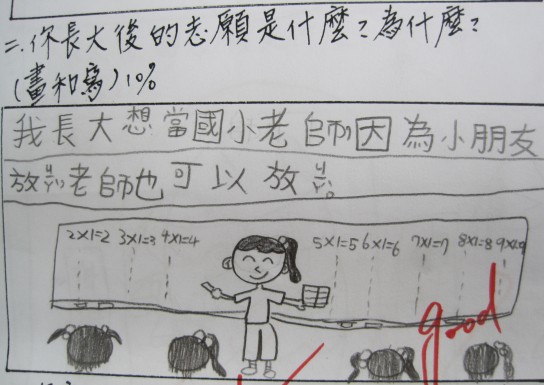 二、你長大後的志願是什麼？為什麼？
(畫和寫)10%
我長大想當國小老師因為小朋友
放ㄐㄧㄚˋ老師也可以放ㄐㄧㄚˋ。
2×1=2 3×1=3 4×1=4 5×1=5 6×1=6 7×1=7 8×1=8 9×1=9
good